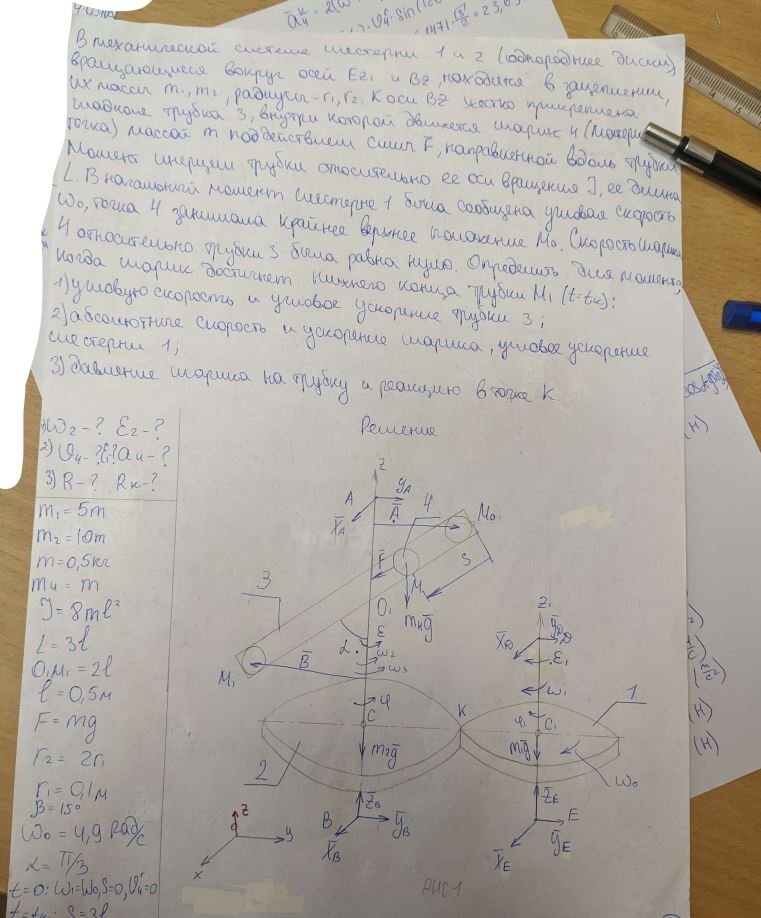 В механической системе шестерни 1 и 2 (однородные диски),
вращающиеся вокруг осей Ez₁ и Bz, находятся в зацеплении,
их массы m₁, m₂, радиусы - r₁, r₂. К оси Bz жестко прикреплена
гладкая трубка 3, внутри которой движется шарик 4 (матери
точка) массой m под действием силы F̅, направленной вдоль трубки.
Момент инерции трубки относительно ее оси вращения J, ее длина
L. В начальный момент шестерне 1 была сообщена угловая скорость
ω₀, точка 4 занимала крайнее верхнее положение M₀. Скорость шарика
4 относительно трубки 3 была равна нулю. Определить для момента,
когда шарик достигнет нижнего конца трубки M₁ (t=tₖ):
1) угловую скорость и угловое ускорение трубки 3;
2) абсолютные скорость и ускорение шарика, угловое ускорение
шестерни 1;
3) давление шарика на трубку и реакцию в точке K.
Решение
1) ω₂ - ? ε₂ - ?
2) υ₄ - ? ε₁ ? a₄ - ?
3) R - ? Rₖ - ?
m₁ = 5m
m₂ = 10m
m = 0,5кг
m₄ = m
J = 8ml²
L = 3l
O₁M₁ = 2l
l = 0,5м
F = mg
r₂ = 2r₁
r₁ = 0,1м
β = 15°
ω₀ = 4,9 рад/с
α = π/3
t=0: ω₁=ω₀, S=0, υ₄ʳ=0
t=tₖ: S=3l
z
A
y̅A
x̅A
A̅
4
M₀
F̅
S
M
m₄g̅
3
O₁
ε
α
ω₂
ω₃
B̅
M₁
φ
C
K
m₂g̅
2
z̅B
B
y̅B
x̅B
z₁
y̅D
D
x̅D
ε₁
ω₁
1
φ₁
C₁
m₁g̅
ω₀
z̅E
E
y̅E
x̅E
z
y
x
РИС.1
(Н)
(Н)
(Н)